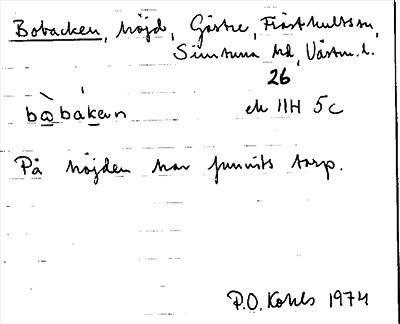 Bobacken, höjd, Götre, Fästhultssn,
Simtuna hd, Västm. l.
26
bωbakɐn ek 11H 5c
På höjden har funnits torp.
P.O. Kohls 1974